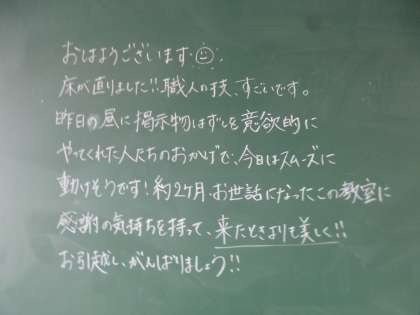 おはようございます☺
床が直りました!!職人の技、すごいです。
昨日の昼に掲示物はずしを意欲的に
やってくれた人たちのおかげで、今日はスムーズに
動けそうです!約2ヶ月、お世話になったこの教室に
感謝の気持ちを持って、来たときよりも美しく!!
お引越し、がんばりましょう!!